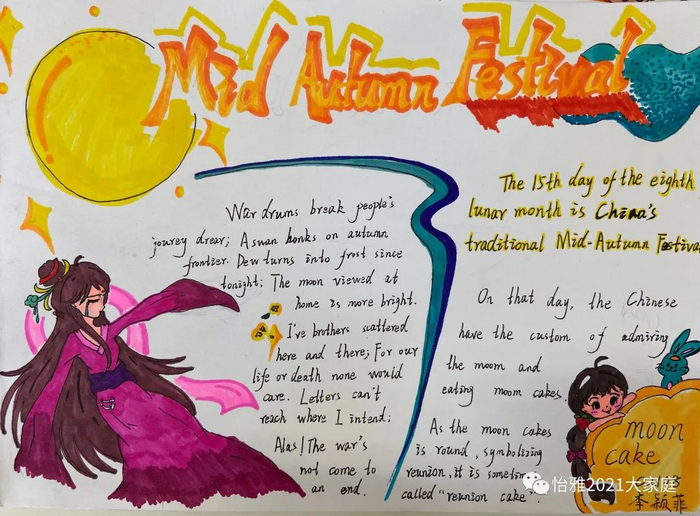 Mid Autumn Festival
War drums break people's
jourey drear; A swan honks on autumn
frontier. Dew turns into frost since
tonight; The moon viewed at
home is more bright.
I've brothers scattered
here and there; For our
life or death none would
care. Letters can't
reach where I intend;
Alas! The war's
not come to
an end.
The 15th day of the eighth
lunar month is China's
traditional Mid-Autumn Festival
On that day, the Chinese
have the custom of admiring
the moom and
eating moom cakes.
As the moon cakes
is round, symbolizing
reunion, it is sometime
called "reunion cake".
moon
cake
李颖菲
怡雅2021大家庭